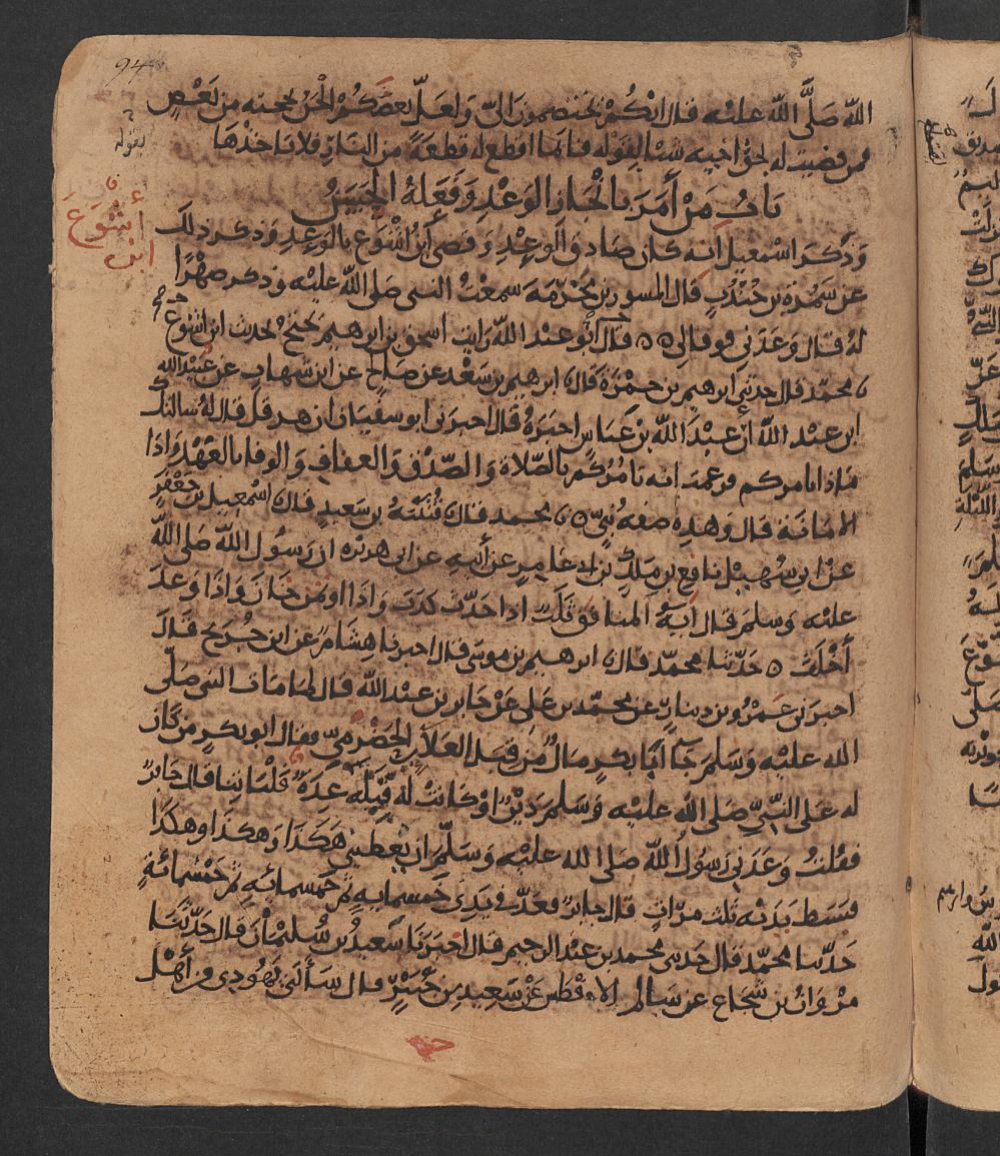 94
الله صَلَّى الله عليه قال انكُمْ تختصمون الىّ وَلَعَلّ بعضكُمْ الحَنُ بحجته من بَعْضٍ
فمن قضيت له بحق اخيه شيئا بقوله فانما اقطع له قطعَة من النار فلا ياخذْهَا
بقوله
بابُ مَنْ أَمَرَ بانْجاز الوَعْدِ وَفَعَلهُ الحَسَنُ
وَذَكَرَ اسْمعيل انه كان صَادق الوعِدْ وَقضى ابنُ اشْوَع بالوَعِدِ وَذكر ذلك
أشْوَعَ
ابن
عن سَمُرة بن جُنْدُبٍ قال المسور بن مَخْرَمَة سَمعْتُ النبى صَلى الله عليْه وَذكر صهْرًا
لهُ قال وَعَدَنى فوفا لى قال ابُو عبْد الله رَايت اسحق بن ابرهيم يحتج بحديث ابن اشوع
محمّد قال حدثنى ابرهيم بن حمْزَة قال ابرهيم بن سَعْد عن صَالح عن ابن شهاب عن عُبَيْد الله
ابن عبْد اللهُ انّ عبْدَ الله بن عَبّاسٍ اخبَرَهُ قال اخبرَنى ابو سفيَان ان هرقل قال لهُ سالتك
مَاذا يامركم فزعمت انه يَامُرُكم بالصّلاة وَالصّدْق وَالعفافِ وَالوفا بالعَهْدِ وَادَا
الامَانَة قال وَهذِهِ صفهُ نبىّ محمد قال قُتَيْبَهُ بن سَعيدٍ قال اسْمعيل بن جَعْفَرٍ
عن ابى سُهيْل نافع بن مَلك بن ابى عامرٍ عن أبيه عن ابى هريْره ان رَسُول الله صَلى اللهُ
عليْه وَسَلم قال آيةُ المنافق ثلَثٌ اذا حَدّث كذبَ وَاذَا اوتمن خَانَ وَاذَا وَعدَ
أَخْلَفَ حَدّثنا محمّد قال ابرهيم بن موسَى قال اخبرنا هِشَامٌ عن ابن جُرَيْجٍ قال
اخبرَنى عَمْرُو بن دينارٍ عن محمّد بن عَلى عَنْ جَابر بن عبْد الله قال لمّا مَات النبى صَلّى
الله عليْه وَسَلم جَا أبَا بكرٍ مَالٌ من قبَل العَلاء الحَضْرَمىّ وقال ابو بكرٍ مَن كانَ
له عَلى النَّبىّ صَلى الله عليْه وَسَلم دَيْنٌ اوْ كانتْ لهُ قِبَلَهُ عِدَةٌ فلْيَاتنا قال جَابرٌ
فقُلتُ وَعَدَنى رَسُولُ الله صَلى الله عليْه وَسَلّم ان يُعْطينى هَكَذَا وَهكذا وهكذا
فبَسَطَ يَدَيْه ثلث مرّاتٍ قال جابرٌ فعَدّ فى يَدِى خمسمايه ثم خمسمائه ثم خَمْسمائةٍ
حَدّثنا محمّد قال حَدثنى محمد بن عبْد الرحيم قال اخبَرَنَا سَعيْدُ بن سُلَيْمانَ قال حَدّثَنَا
مَرْوَانُ بن شُجَاعٍ عن سَالم الافْطس عَنْ سَعيد بن جُبَيْرٍ قال سَألنى يَهُودى من أهْل